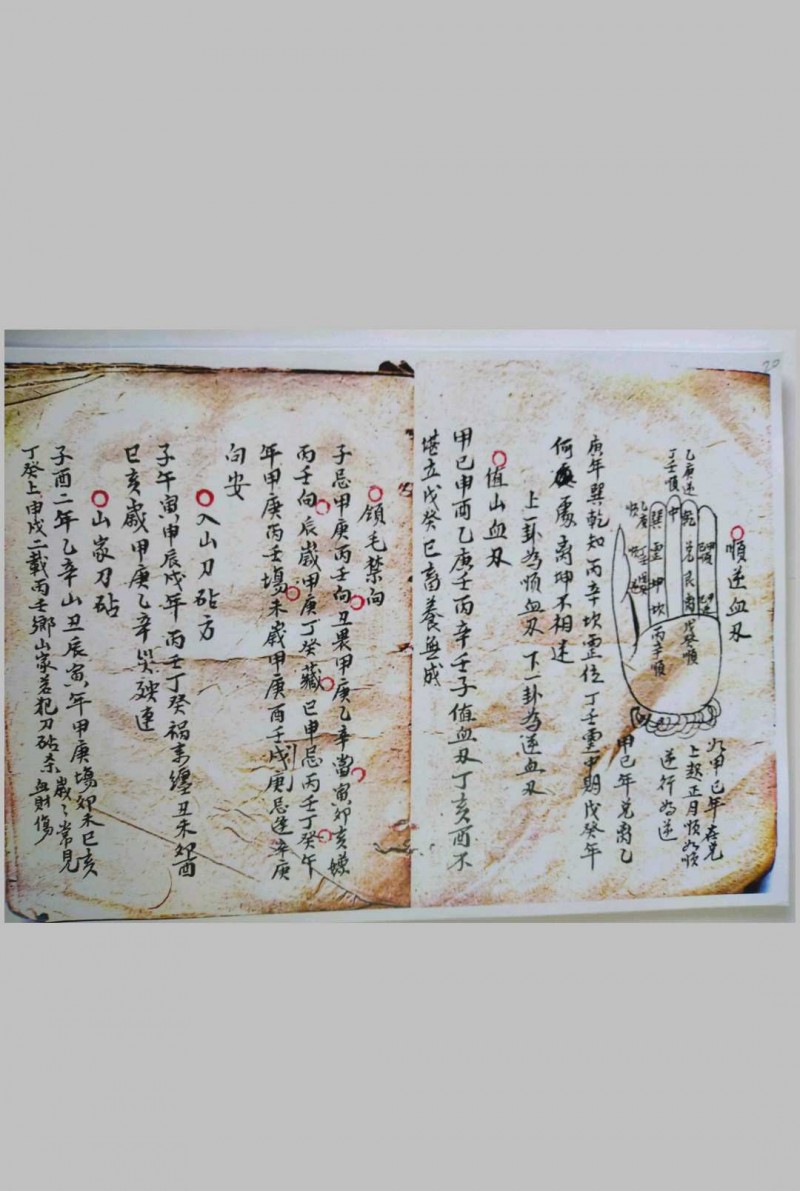 20
順逆血刃
九甲己年在兌
上起正月順如順
逆行為逆
乙庚逆
丁壬順
中
乾兌艮离
巽震坤坎
戊癸順
丙辛順
甲己年兌离乙
庚年巽乾知丙辛坎震位丁壬震中期戊癸年
何處离坤不相逢
上一卦為順血刃下一卦為逆血刃
值山血刃
甲己申酉乙庚壬丙辛壬子值血刃丁亥酉不
堪立戊癸巳畜養無成
領毛禁向
子忌甲庚丙壬向丑畏甲庚乙辛當寅卯亥嫌
丙壬向辰歲甲庚丁癸藏巳申忌丙壬丁癸午
年甲庚丙壬塲未歲甲庚酉壬戌庚忌逢辛庚
向安
入山刀砧方
子午寅申辰戌年丙壬丁癸禍來纏丑未卯酉
巳亥歲甲庚乙辛災殃連
山家刀砧
子酉二年乙辛山丑辰寅年甲庚塲卯未巳亥
丁癸上申戌二載丙壬鄉山家若犯刀砧杀歲々常見
血財傷